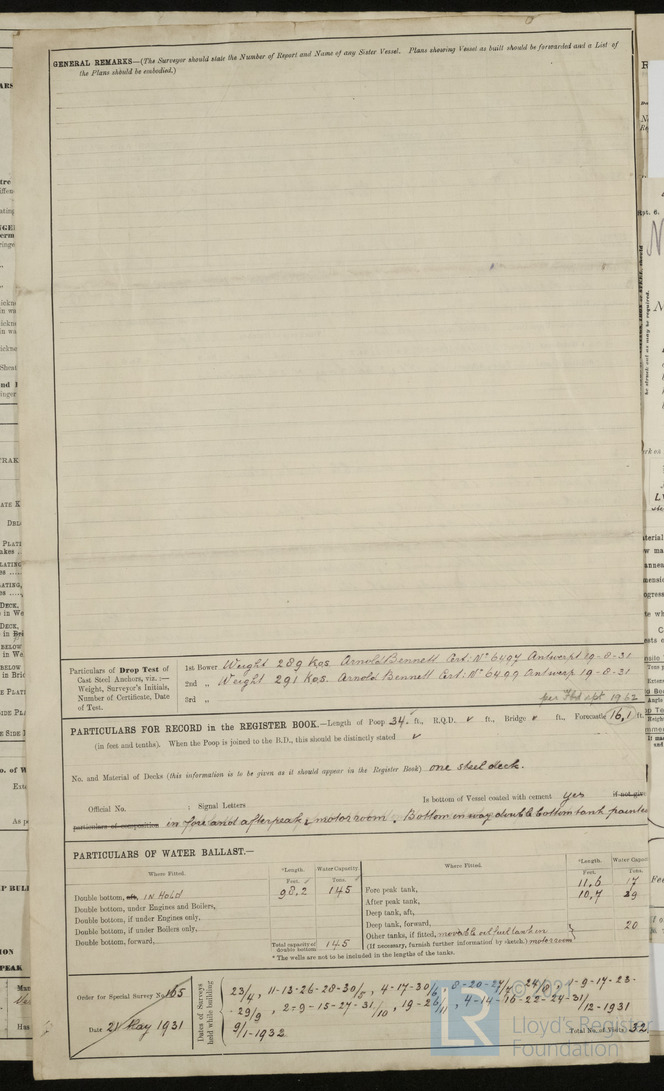 GENERAL REMARKS—(The Surveyor should state the Number of Report and Name of any Sister Vessel. Plans showing Vessel as built should be forwarded and a List of
the Plans should be embodied.)
Particulars of Drop Test of
Cast Steel Anchors, viz. :—
Weight, Surveyor's Initials,
Number of Certificate, Date
of Test.
1st Bower Weight 289 Kgs. Arnold Bennett Cert: No 6497 Antwerp 19-8-31
2nd „ Weight 291 Kgs. Arnold Bennett Cert: No 6499 Antwerp 19-8-31
3rd „
PARTICULARS FOR RECORD in the REGISTER BOOK.—Length of Poop 34. ft., R.Q.D. ✓ ft., Bridge ✓ ft., Forecastle 16,1 ft.
(in feet and tenths). When the Poop is joined to the B.D., this should be distinctly stated ✓
No. and Material of Decks (this information is to be given as it should appear in the Register Book) one steel deck.
Official No. ; Signal Letters Is bottom of Vessel coated with cement yes if not give
particulars of composition in fore and afterpeak & motor room. Bottom in way double bottom tank painted
PARTICULARS OF WATER BALLAST.—
Where Fitted. *Length. Water Capacity. Where Fitted. *Length. Water Capacity
Feet. Tons. Feet. Tons.
Double bottom, aft, IN HOLD 98,2 145 Fore peak tank, 11,6 17
Double bottom, under Engines and Boilers, After peak tank, 10,7 29
Double bottom, if under Engines only, Deep tank, aft,
Double bottom, if under Boilers only, Deep tank, forward, 20
Double bottom, forward, Total capacity of double bottom 145 Other tanks, if fitted,
(If necessary, furnish further information by sketch.) motor room
* The wells are not to be included in the lengths of the tanks.
Order for Special Survey No. 165
Date 21 May 1931
Dates of Surveys
held while building
23/4, 11-13-26-28-30/5, 4-17-30/6, 8-20-27/7
-29/9, 2-9-15-27-31/10, 19-26/11, 4-14-16-22-24-31/12-1931
9/1-1932
Total No. of Visits 32
Lloyd's Register
Foundation